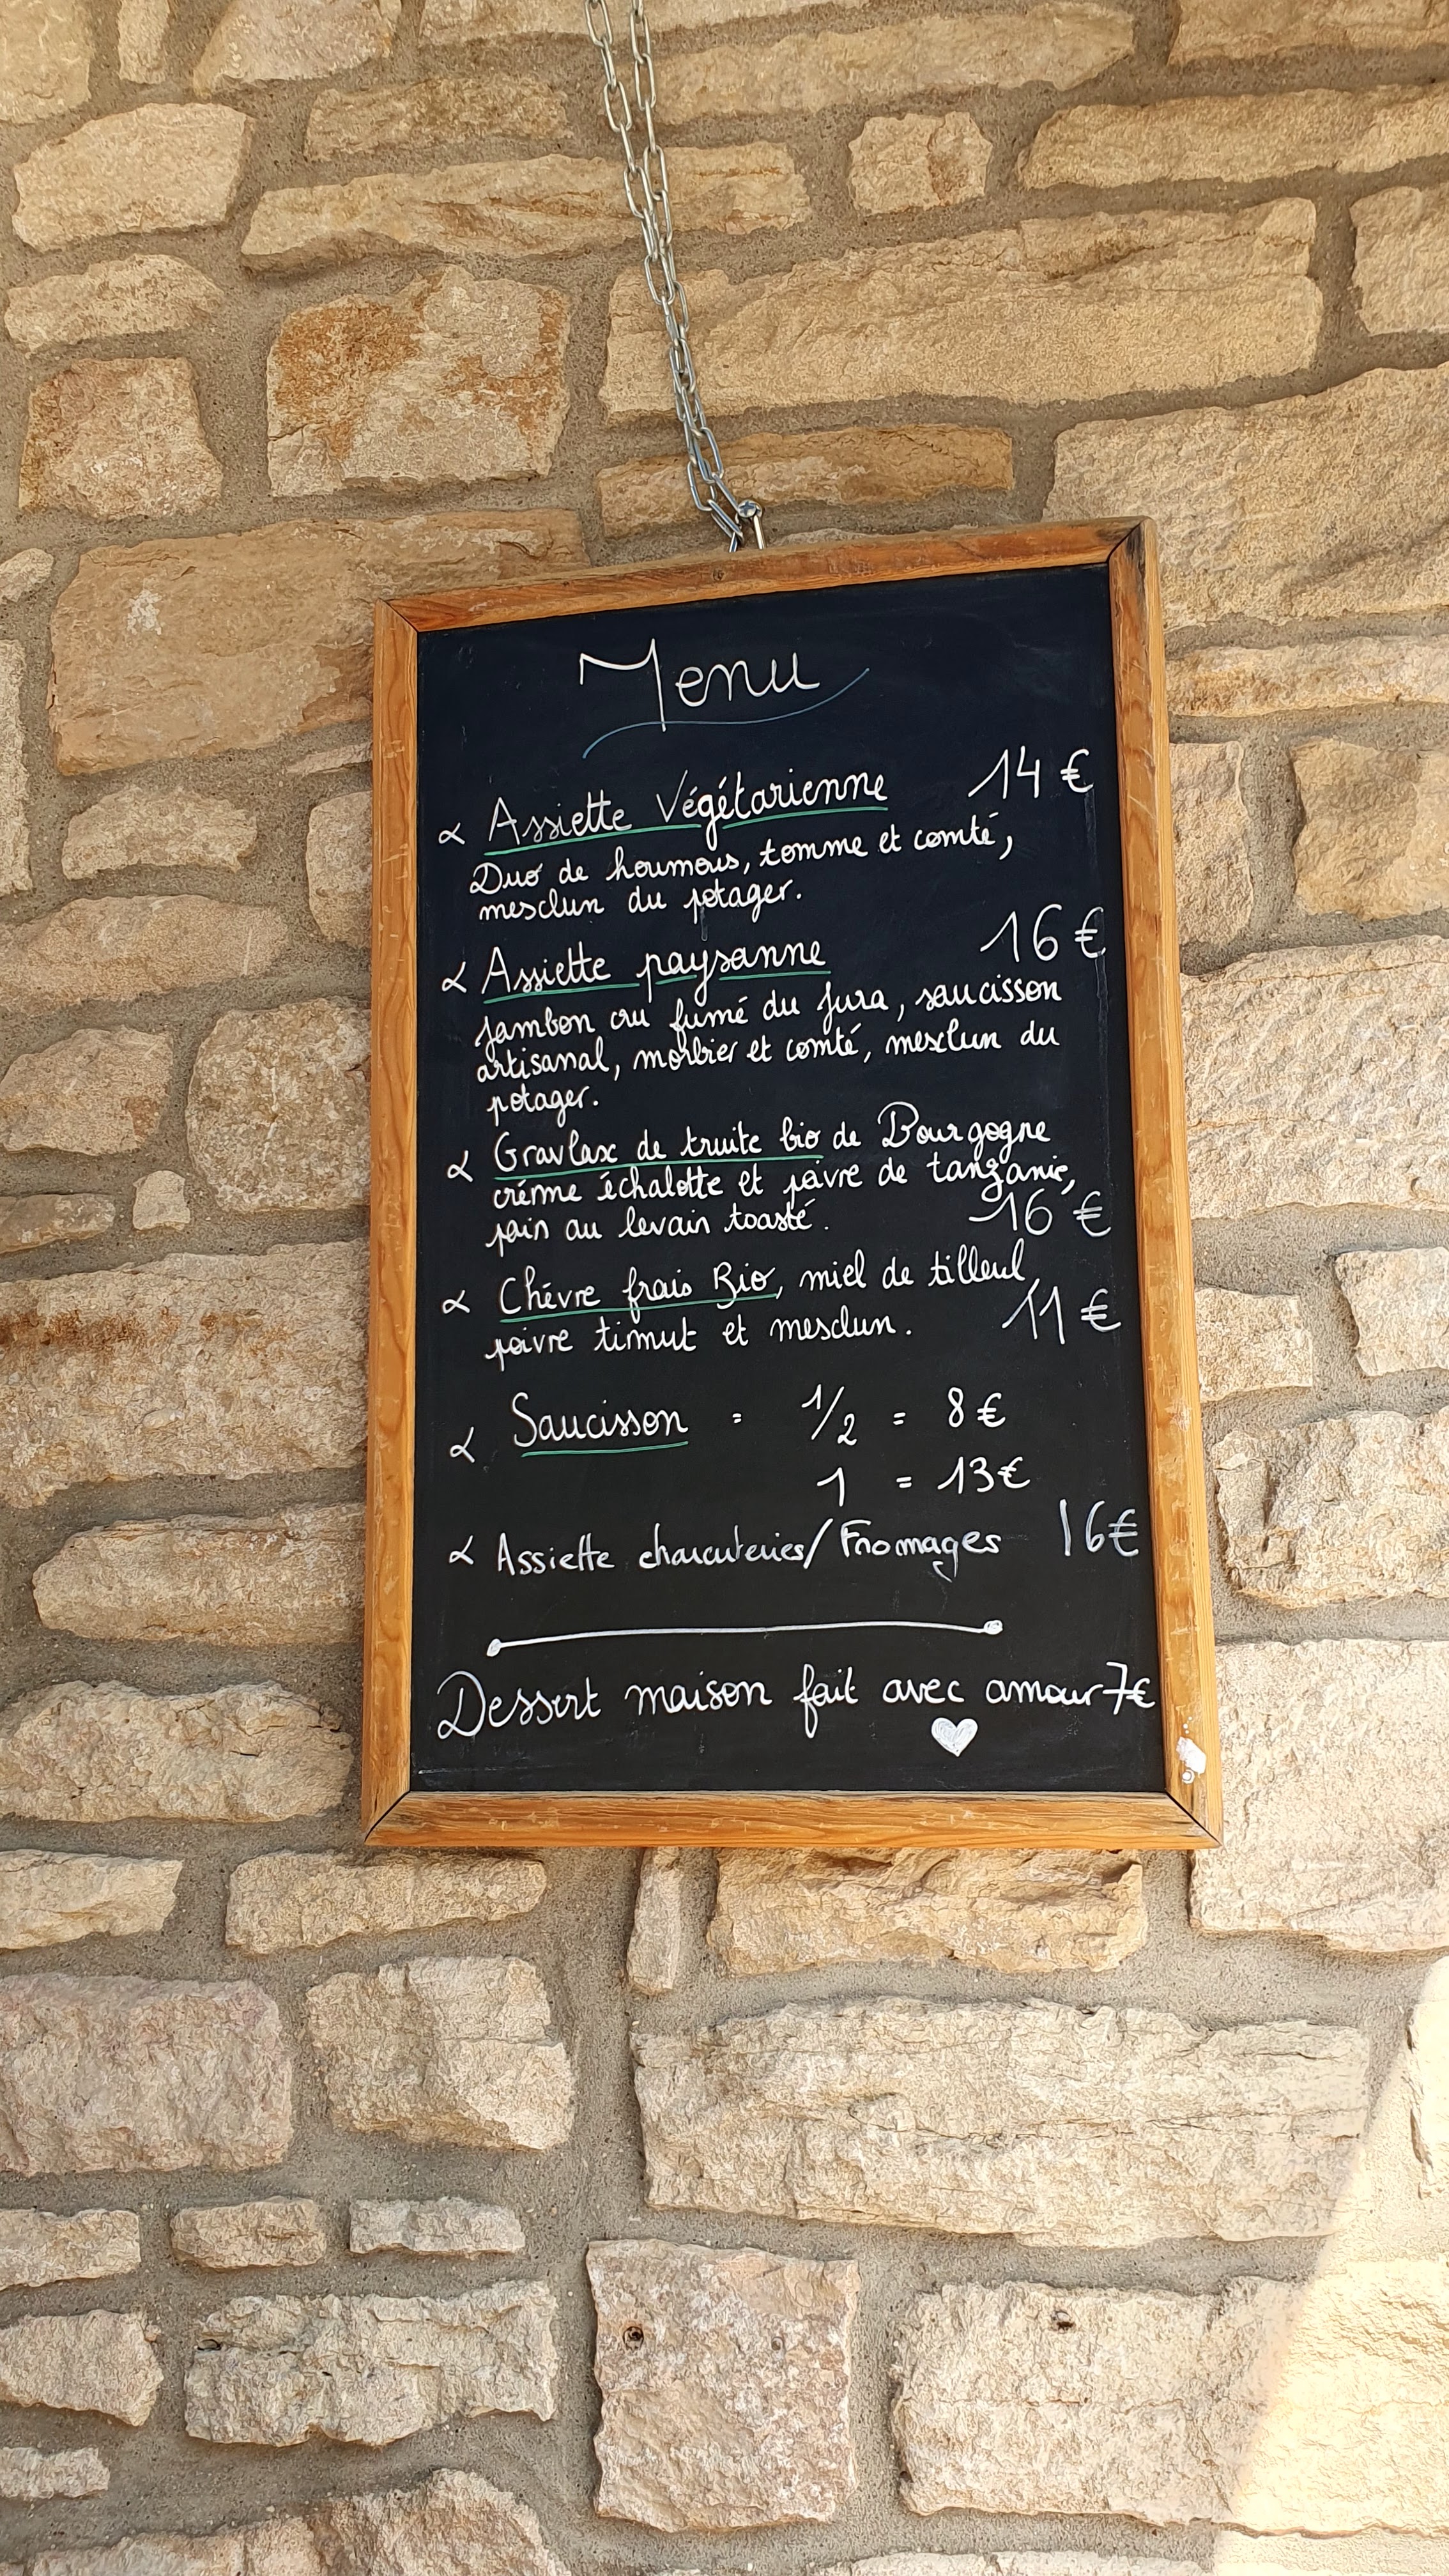 Menu
∝ Assiette Végétarienne 14 €
Duo de houmous, tomme et comté,
mesclun du potager.
∝ Assiette paysanne 16 €
jambon cru fumé du jura, saucisson
artisanal, morbier et comté, mesclun du
potager.
∝ Gravlax de truite bio de Bourgogne
crème échalotte et poivre de tanzanie,
pain au levain toasté. 16 €
∝ Chèvre frais Bio, miel de tilleul,
poivre timut et mesclun. 11 €
∝ Saucisson = 1/2 = 8 €
1 = 13€
∝ Assiette charcuteries/Fromages 16€
Dessert maison fait avec amour 7€